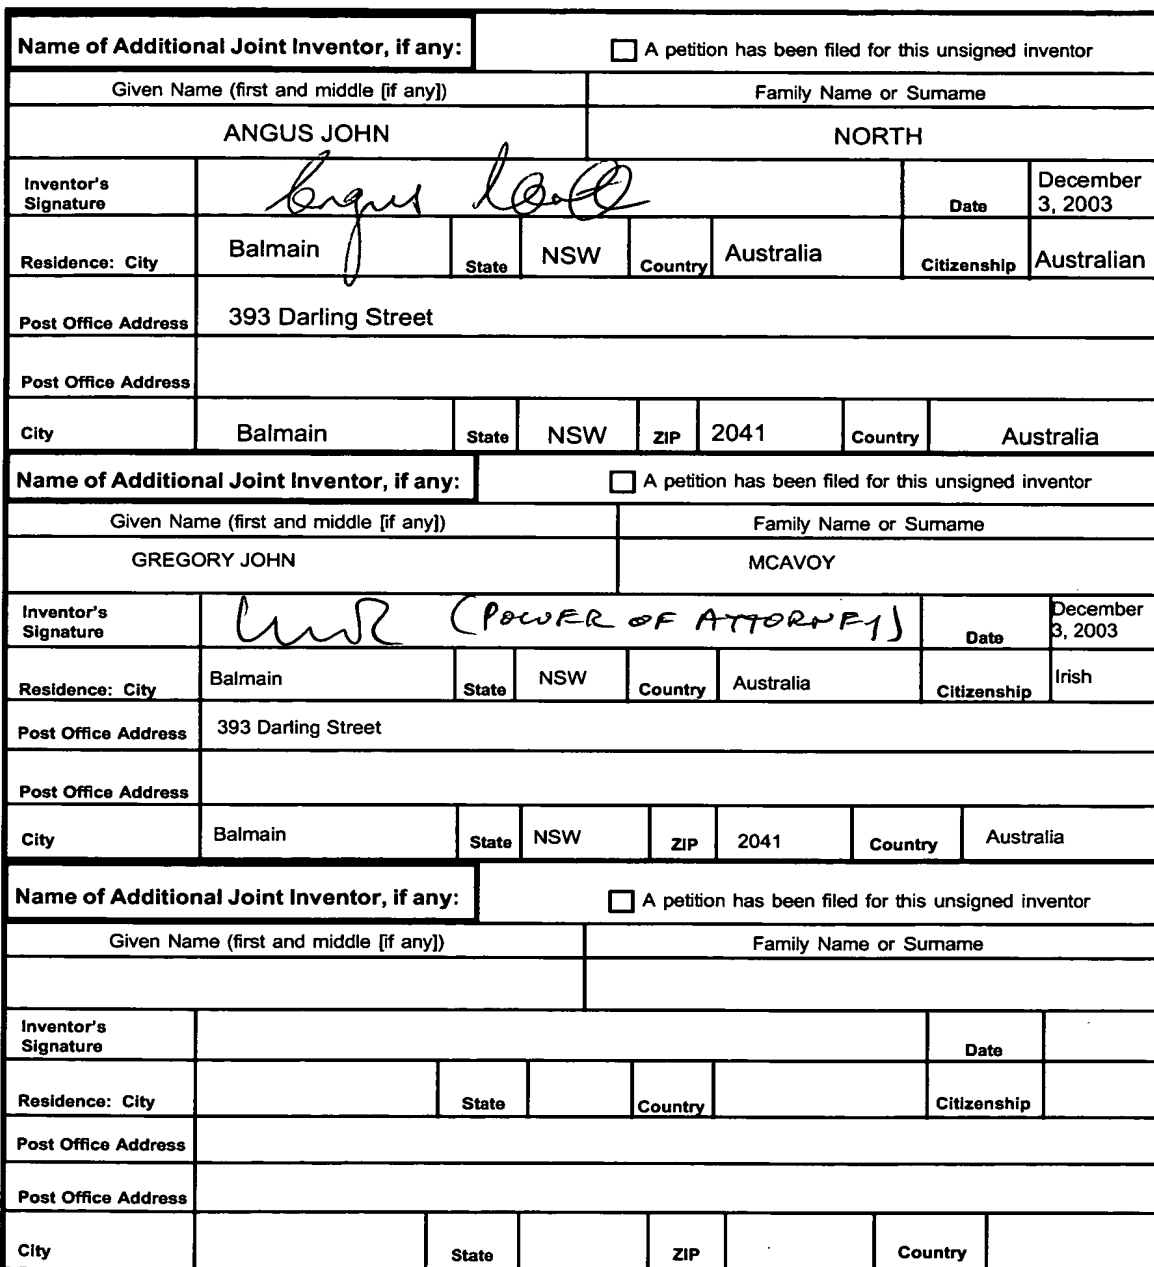 Name of Additional Joint Inventor, if any:
A petition has been filed for this unsigned inventor
Given Name (first and middle [if any])
Family Name or Surname
ANGUS JOHN
NORTH
Inventor's
Signature
Angus North
Date
December
3, 2003
Residence: City
Balmain
State
NSW
Country
Australia
Citizenship
Australian
Post Office Address
393 Darling Street
Post Office Address
City
Balmain
State
NSW
ZIP
2041
Country
Australia
Name of Additional Joint Inventor, if any:
A petition has been filed for this unsigned inventor
Given Name (first and middle [if any])
Family Name or Surname
GREGORY JOHN
MCAVOY
Inventor's
Signature
(POWER OF ATTORNEY)
Date
December
3, 2003
Residence: City
Balmain
State
NSW
Country
Australia
Citizenship
Irish
Post Office Address
393 Darling Street
Post Office Address
City
Balmain
State
NSW
ZIP
2041
Country
Australia
Name of Additional Joint Inventor, if any:
A petition has been filed for this unsigned inventor
Given Name (first and middle [if any])
Family Name or Surname
Inventor's
Signature
Date
Residence: City
State
Country
Citizenship
Post Office Address
Post Office Address
City
State
ZIP
Country